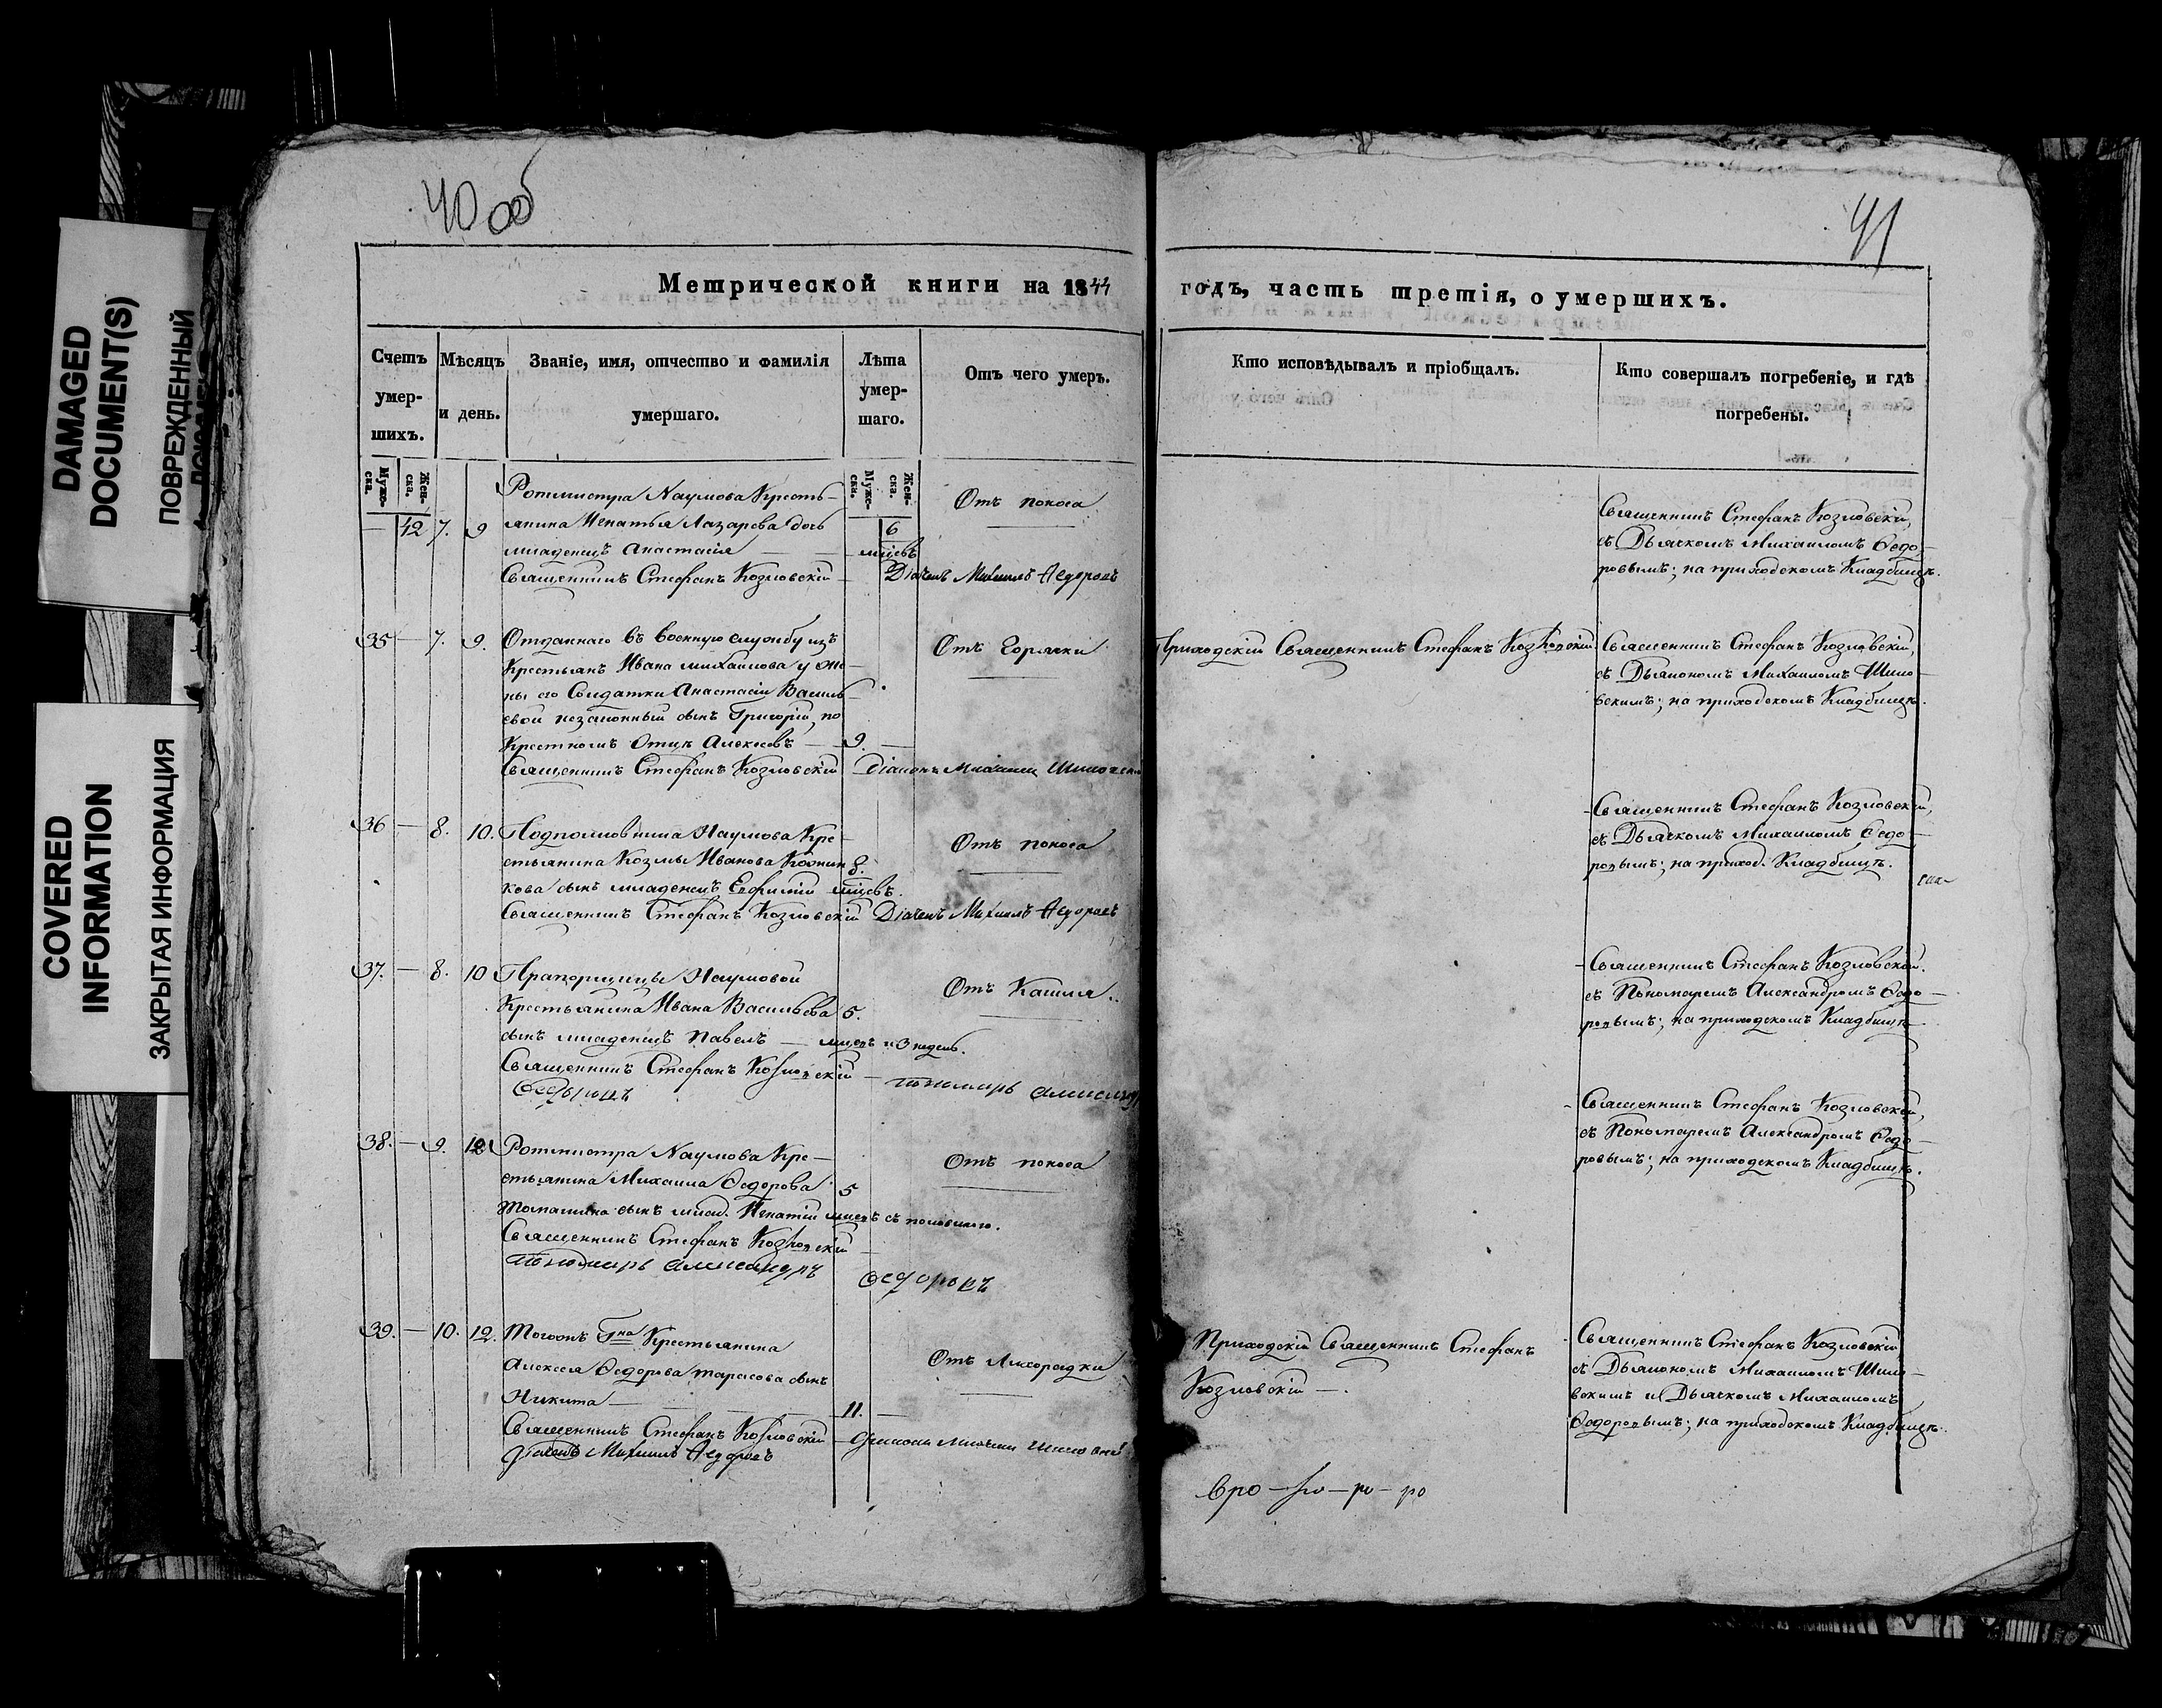 40 об
41
DAMAGED
DOCUMENT(S)
ПОВРЕЖДЕННЫЙ
COVERED
INFORMATION
ЗАКРЫТАЯ ИНФОРМАЦИЯ
Метрической книги на 1844 годъ, часть третія, о умершихъ.
Счетъ умер-шихъ.
Мѣсяцъ и день.
Званіе, имя, отчество и фамилія умершаго.
Лѣта умер-шаго.
Отъ чего умеръ.
Кто исповѣдывалъ и пріобщалъ.
Кто совершалъ погребеніе, и гдѣ погребены.
Муже-ска.
Жен-ска.
Муже-ска.
Жен-ска.
Ротмистра Наумова Кресть-
— 42 7. 9 янина Игнатья Лазарева дочь 6
младенецъ Анастасія — мцсвъ
Отъ поноса
Священникъ Стефанъ Козловскій Діячекъ Михаилъ Федоровъ
Священникъ Стефанъ Козловскій,
съ Дьячкомъ Михаиломъ Федо-
ровымъ; на приходскомъ Кладбищѣ.
35 — 7. 9. Отданнаго въ военную службу изъ
Крестьянъ Ивана Михайлова у же-
ны его Солдатки Анастасіи Василь-
евой незаконный сынъ Григорій, по
Крестномъ Отцѣ Алексѣевъ — 9. —
Отъ Горячки
Священникъ Стефанъ Козловскій Діаконъ Михаилъ
Приходскій Священникъ Стефанъ Козловскій
Священникъ Стефанъ Козловскій,
съ Дьякономъ Михаиломъ Шило-
вскимъ; на приходскомъ Кладбищѣ.
36 — 8. 10. Подполковника Наумова Кре-
стьянина Козмы Иванова 8.
кова сынъ младенецъ Евфимій мцсвъ.
Отъ поноса
Священникъ Стефанъ Козловскій Діячекъ Михаилъ Федоровъ
Священникъ Стефанъ Козловскій,
съ Дьячкомъ Михаиломъ Федо-
ровымъ; на приход. Кладбищѣ.
37. — 8. 10 Прапорщицы Наумовой
Крестьянина Ивана Васильева 5.
сынъ младенецъ Павелъ — мцсвъ и 3 недель.
Отъ Кашля.
Священникъ Стефанъ Козловскій — пономарь
Федоровъ
Священникъ Стефанъ Козловскій.
съ Пономаремъ Александромъ Федо-
ровымъ; на приходскомъ Кладбищѣ
38. — 9. 12 Ротмистра Наумова Кре-
стьянина Михаила Федорова 5
сынъ млад. Игнатій мцсвъ съ половиною.
Отъ поноса
Священникъ Стефанъ Козловскій
Пономарь Александръ Федоровъ
Священникъ Стефанъ Козловскій,
съ Пономаремъ Александромъ Федо-
ровымъ; на приходскомъ Кладбищѣ.
39. — 10. 12. Тогожъ Гна Крестьянина
Алексея Федорова Тарасова сынъ
Никита — 11. —
Отъ Лихорадки
Священникъ Стефанъ Козловскій
діячекъ Михаилъ Федоровъ
Приходскій Священникъ Стефанъ
Козловскій —.
Священникъ Стефанъ Козловскій
съ Дьякономъ Михаиломъ Шило-
вскимъ и Дьячкомъ Михаиломъ
Федоровымъ; на приходскомъ Кладбищѣ.